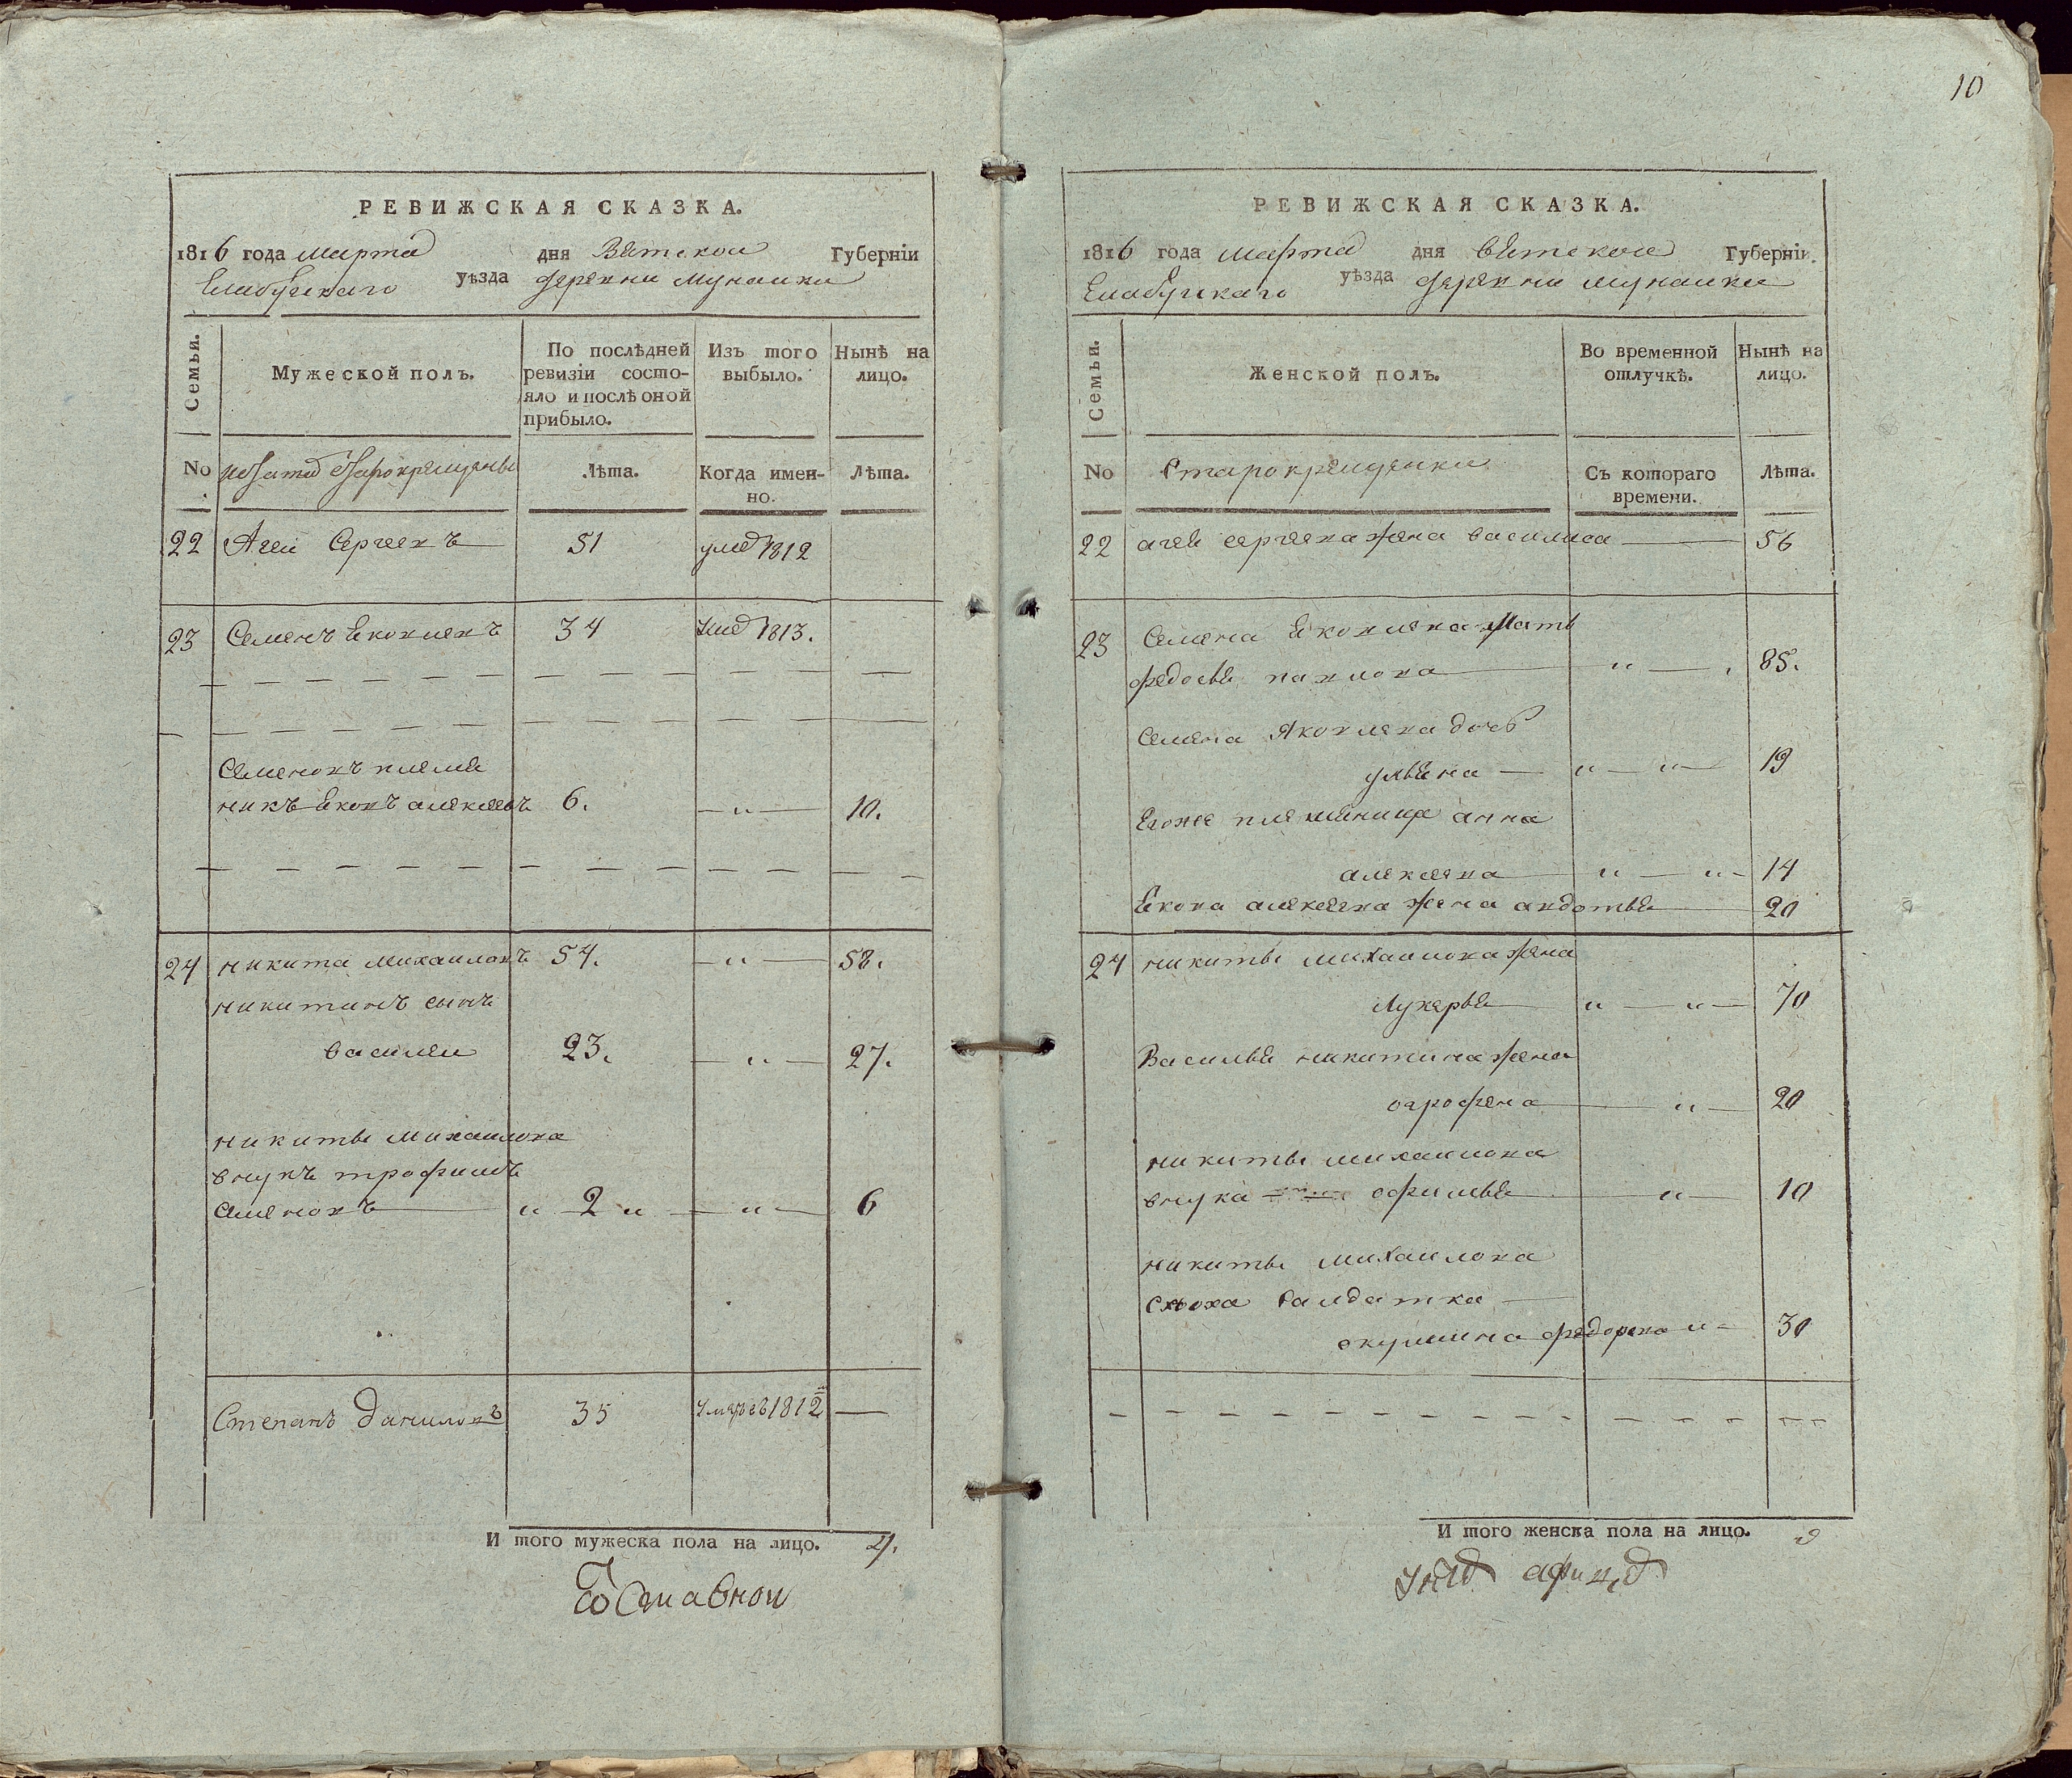 10
РЕВИЖСКАЯ СКАЗКА.
1816 года марта дня Вятской Губерніи
Елабугскаго уѣзда деревни Мунайки
Семьи.
Мужеской полъ.
По послѣдней ревизіи состо-
яло и послѣ оной
прибыло.
Изъ того
выбыло.
Нынѣ на
лицо.
No
старокрещены
Лѣта.
Когда имен-
но.
Лѣта.
22 Агей Сергеевъ 51 умер 1812
23 Семенъ Яковлевъ 34 1813.
Семеновъ племя
никъ Яковъ алексеевъ 6. 10.
24 никита михаиловъ 54. 58.
никитинъ сынъ
василеи 23. 27.
никиты михаилова
внукъ трофимъ
семеновъ 2 6
Степанъ Даниловъ 35 умре въ 1812
И того мужеска пола на лицо. 4.
РЕВИЖСКАЯ СКАЗКА.
1816 года марта дня вятской Губерніи.
Елабугскаго уѣзда деревни мунайки
Семьи.
Женской полъ.
Во временной
отлучкѣ.
Нынѣ на
лицо.
No
Старокрещенки
Съ котораго
времени.
Лѣта.
22 агея сергеева жена василиса 56
23 Семена Яковлева мать
федосья павлова 85.
Семена Яковлева дочь
ульяна 19
Егоже племяница анна
алексеева 14
Якова алексеева жена авдотья 20
24 никиты михаилова жена
лукерья 70
Василья никитина жена
огрофена 20
никиты михаилова
внука офимья 10
никиты михаилова
сноха салдатка
окулина федорова 30
И того женска пола на лицо. 9